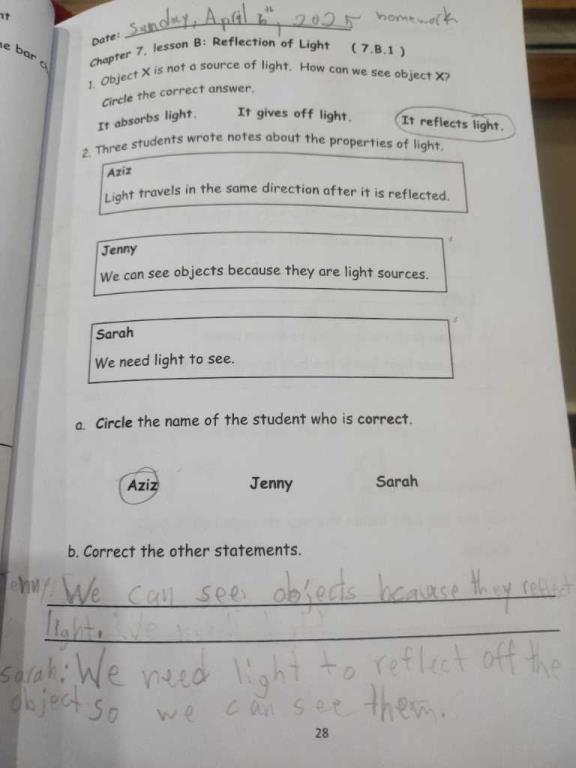 nt
e bar c
Date: Sunday, April 6th, 2025 homework
Chapter 7, lesson B: Reflection of Light (7.B.1)
1. Object X is not a source of light. How can we see object X?
Circle the correct answer.
It absorbs light. It gives off light. It reflects light.
2. Three students wrote notes about the properties of light.
Aziz
Light travels in the same direction after it is reflected.
Jenny
We can see objects because they are light sources.
Sarah
We need light to see.
a. Circle the name of the student who is correct.
Aziz Jenny Sarah
b. Correct the other statements.
Jenny: We can see objects because they reflect
light.
Sarah: We need light to reflect off the
object so we can see them.
28